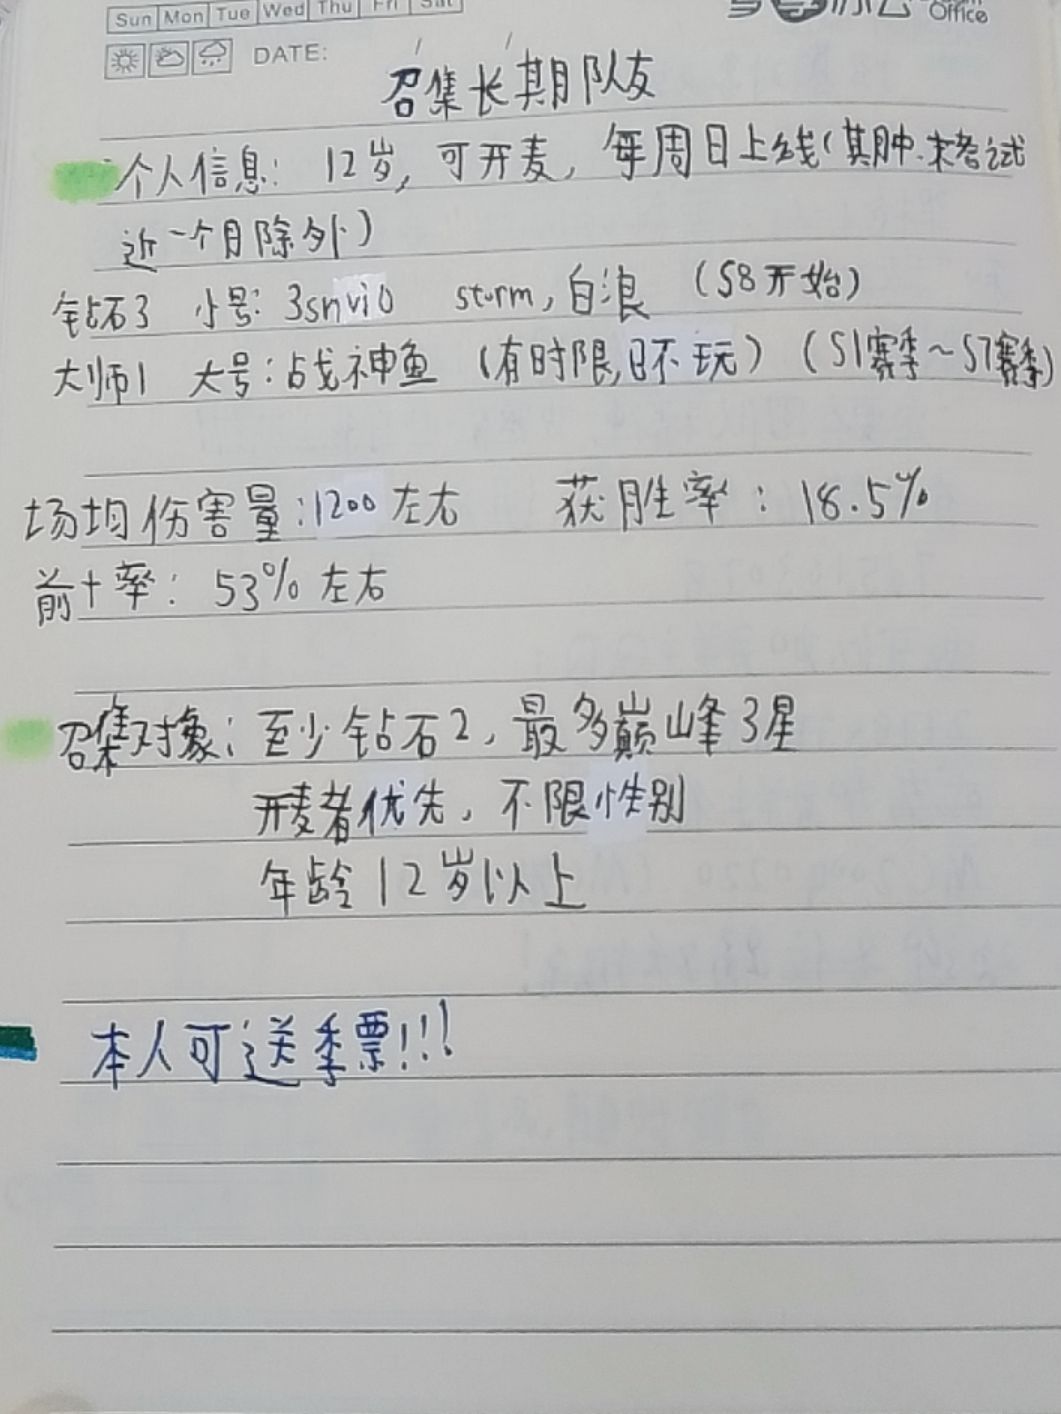 Sun Mon Tue Wed Thu Fri Sat
Office
DATE:
召集长期队友
个人信息: 12岁, 可开麦, 每周日上线(其中.末考试
近一个月除外)
钻石3 小号: 3snvi0 storm, 白浪 (S8开始)
大师1 大号: 战神鱼 (有时限,日不玩) (S1赛季~S7赛季)
场均伤害量:1200左右 获胜率: 18.5%
前十率: 53%左右
召集对象: 至少钻石2, 最多巅峰3星
开麦者优先, 不限性别
年龄12岁以上
本人可送季票!!!